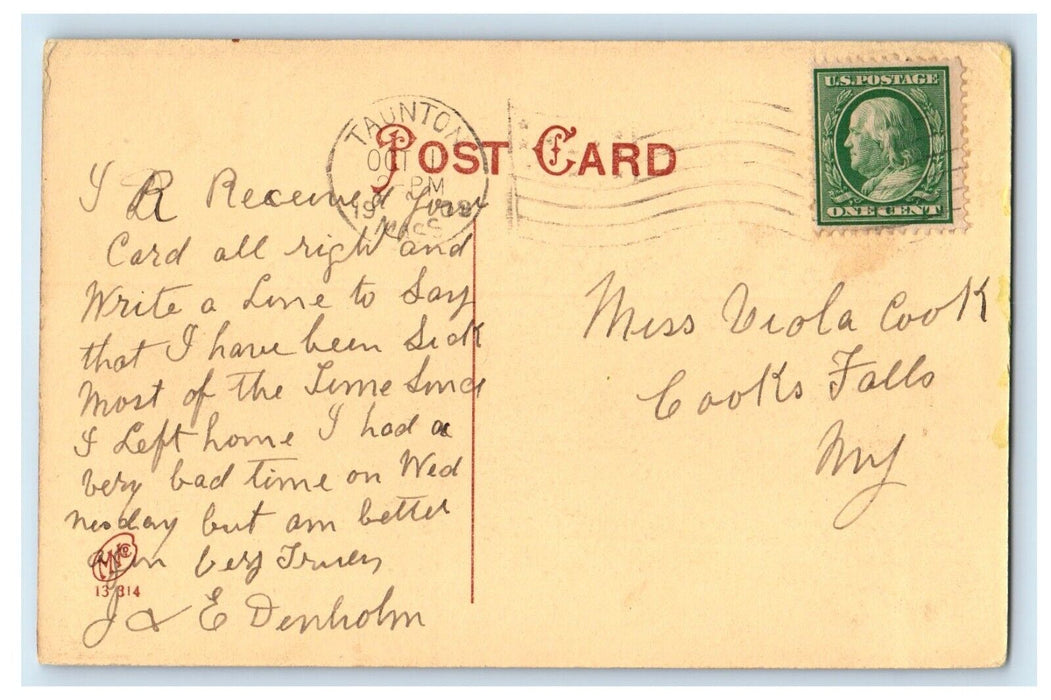 POST CARD
U.S. POSTAGE
ONE CENT
TAUNTON
OCT 1
2 PM
1908
MASS
I R Received your
Card all right and
Write a Line to Say
that I have been Sick
Most of the Time Since
I Left home I had a
very bad time on Wed
nesday but am better
very Truly
J & E Denholm
13 814
Miss Viola Cook
Cooks Falls
NY